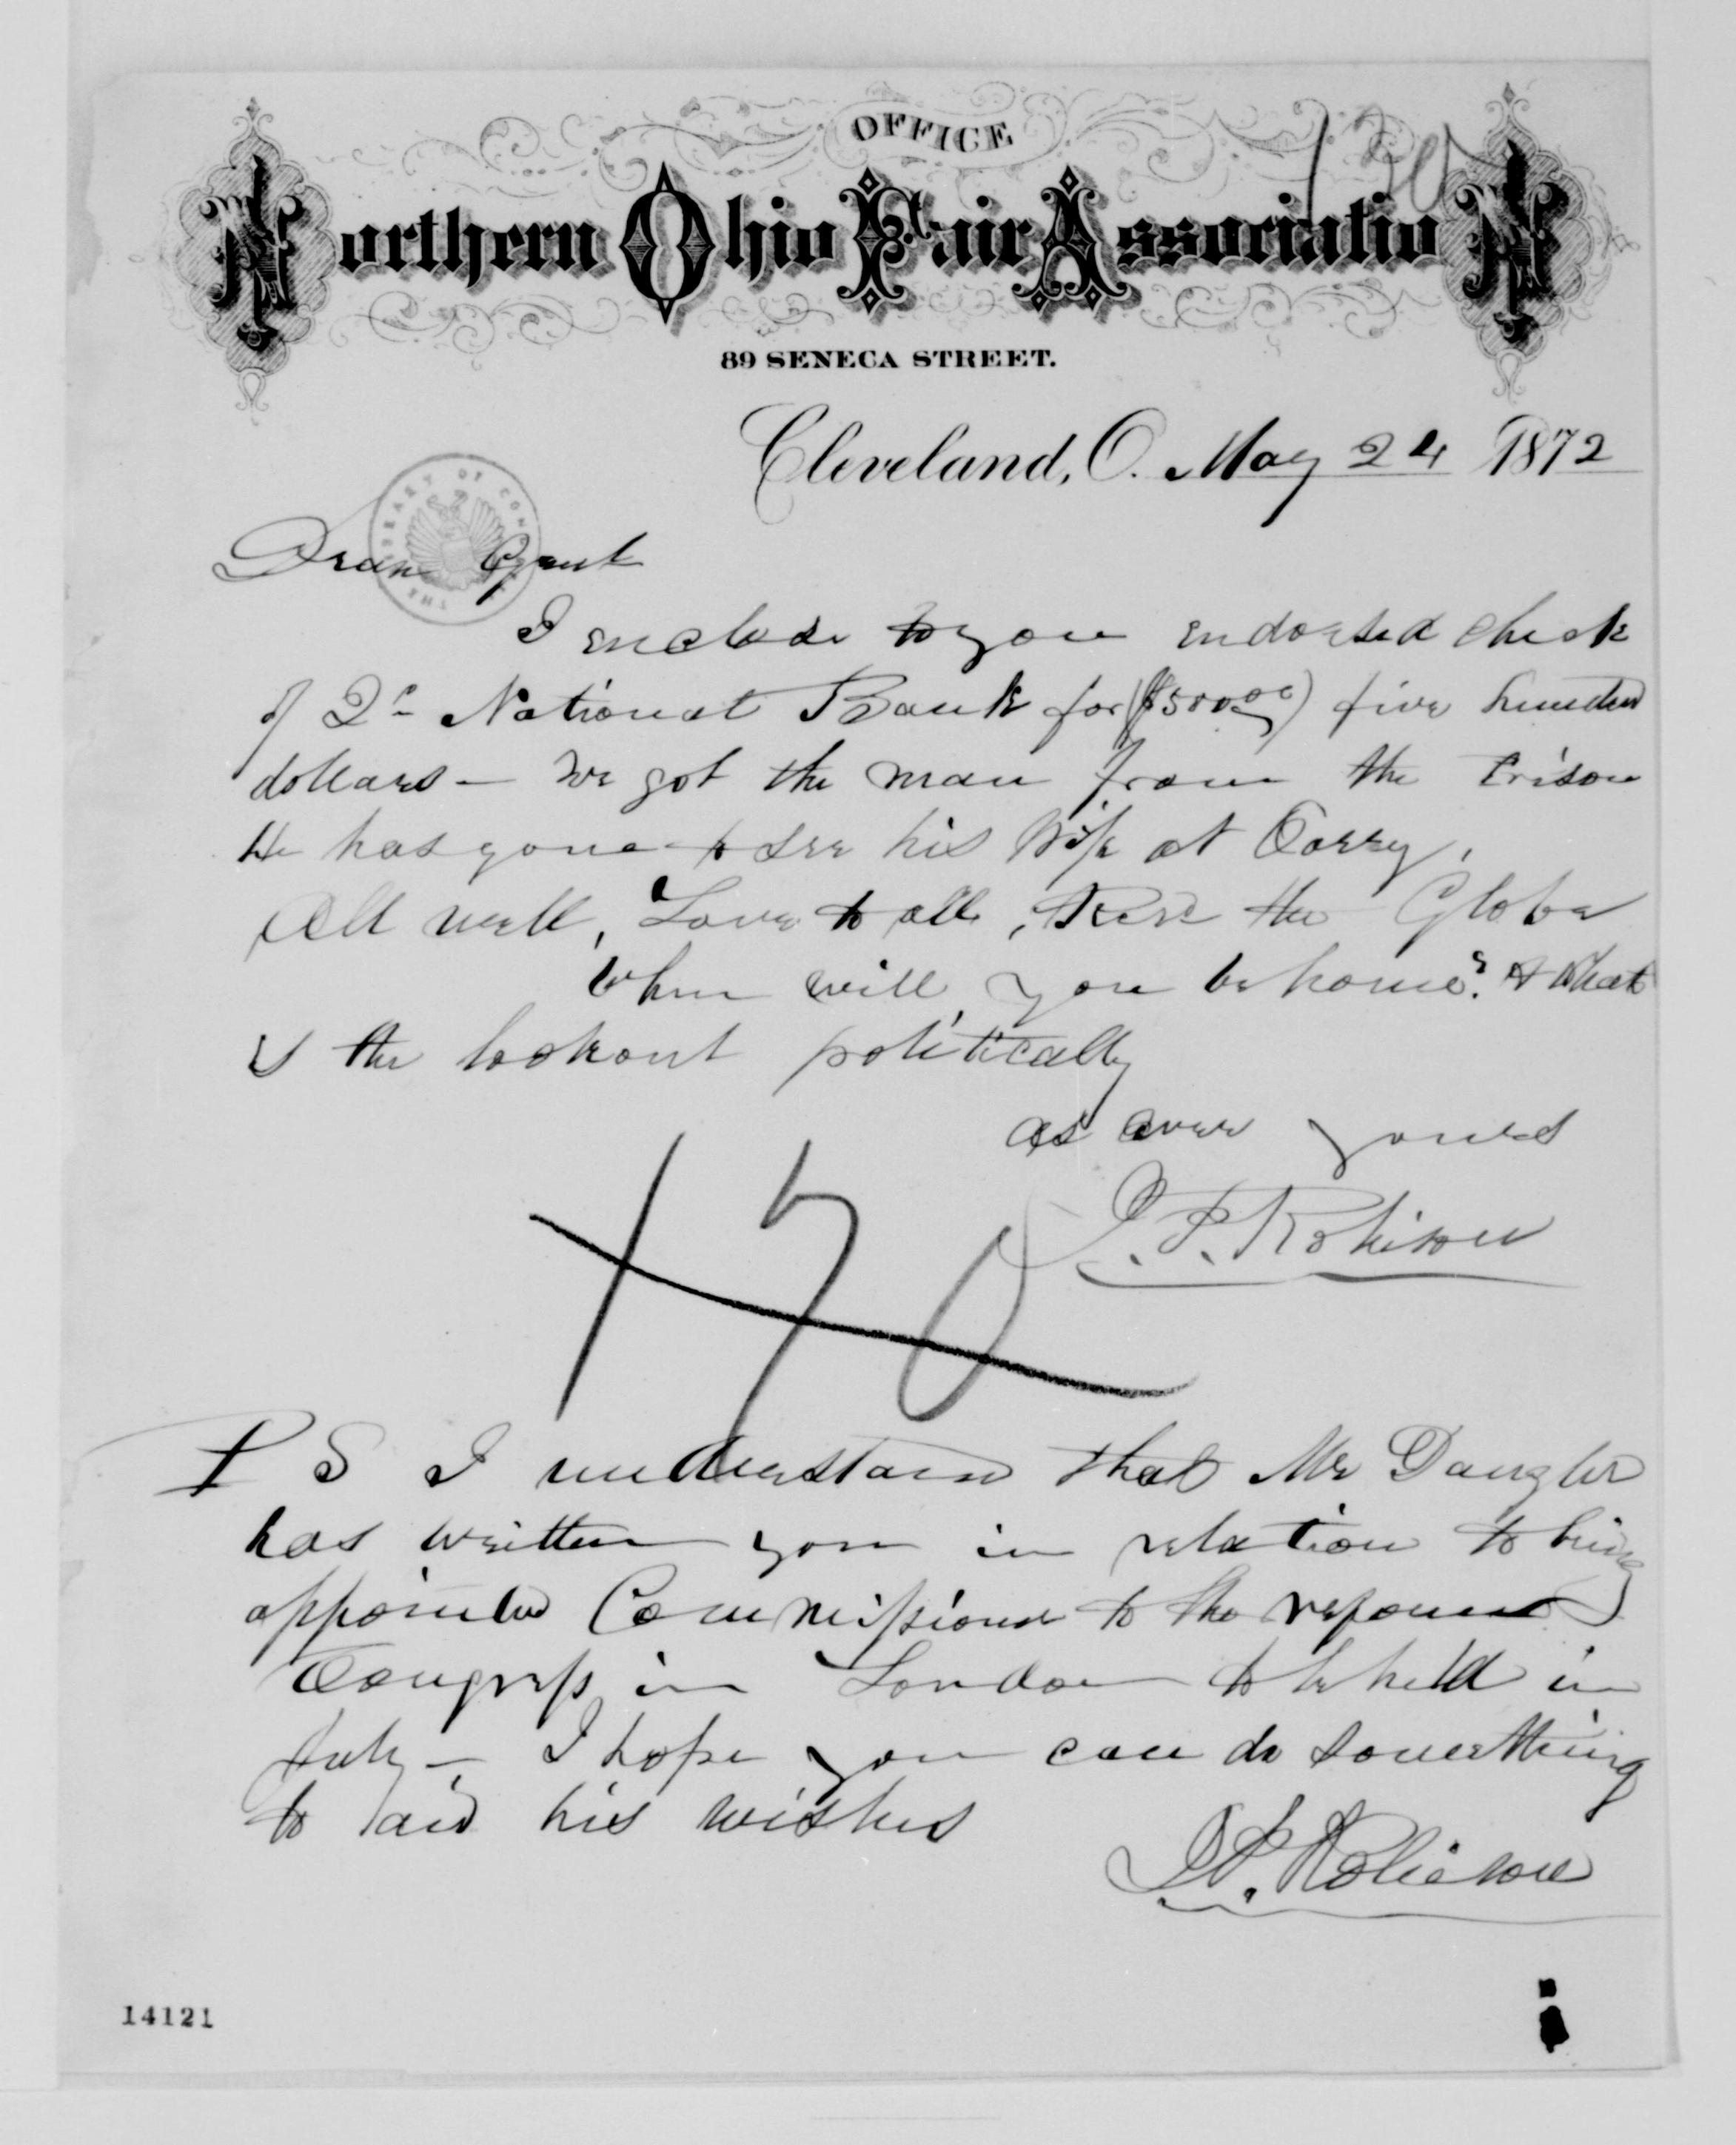 OFFICE
Northern Ohio Fair Association
89 SENECA STREET.
Cleveland, O. May 24 1872
THE LIBRARY OF CONGRESS
Dear
I enclose to you endorsed check
of 2d National Bank for ($500.00) five hundred
dollars — We got the man from the Prison
He has gone to see his Wife at Corry,
All well, Love to all, the Globe
When will you be home? & what
is the lookout politically
as ever yours
J. P. Robison
170
P S I understand that Mr Dangler
has written you in relation to being
appointed Commissioner to the reform
Congress in London to be held in
July — I hope you can do something
to aid his wishes
J. P. Robison
14121